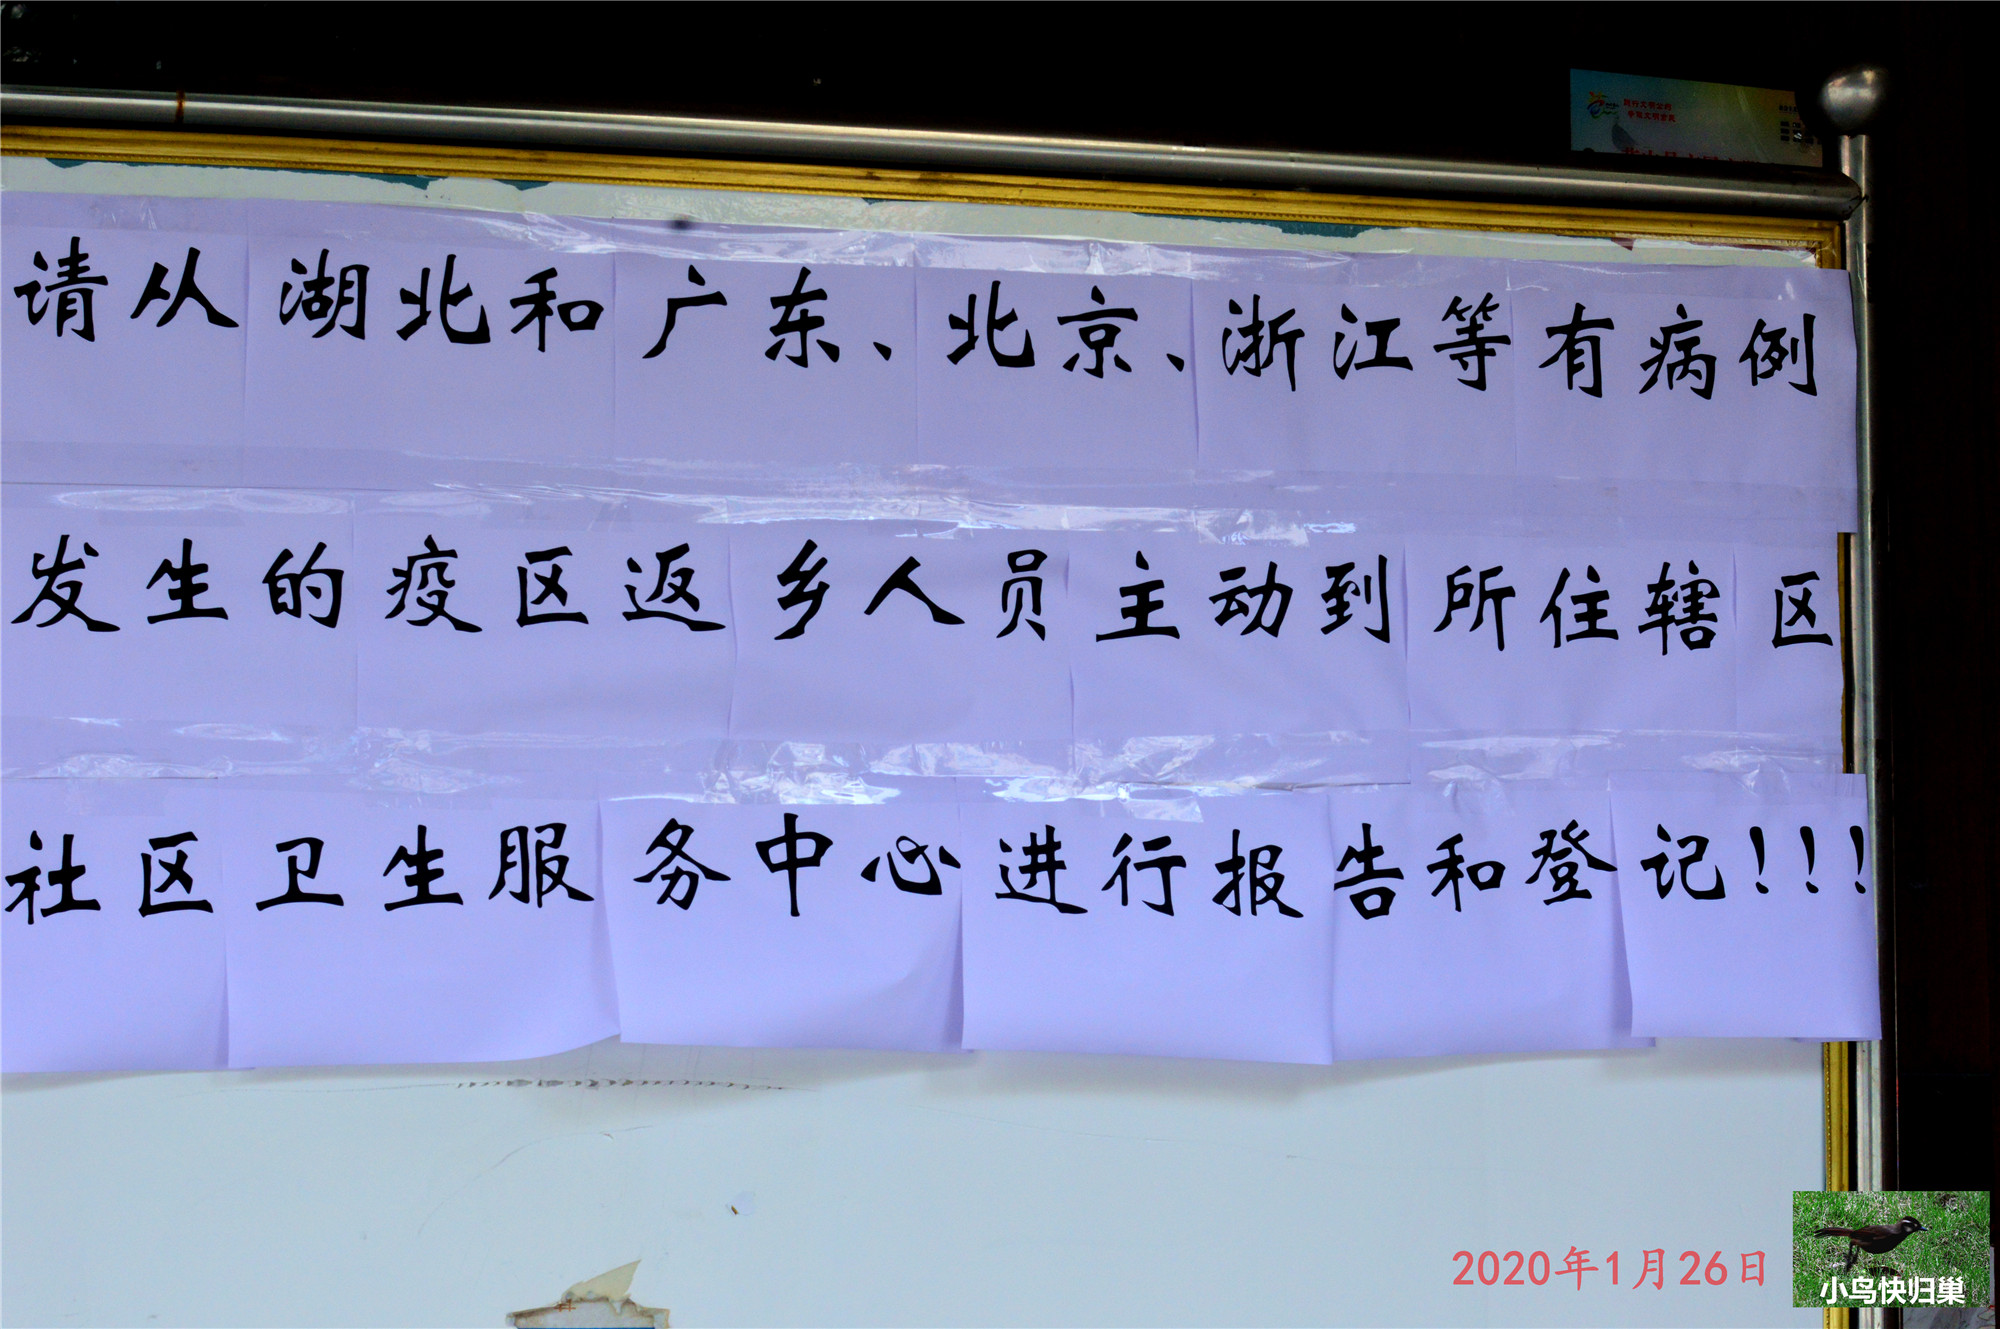 请从湖北和广东、北京、浙江等有病例
发生的疫区返乡人员主动到所住辖区
社区卫生服务中心进行报告和登记!!!
2020年1月26日
小鸟快归巢